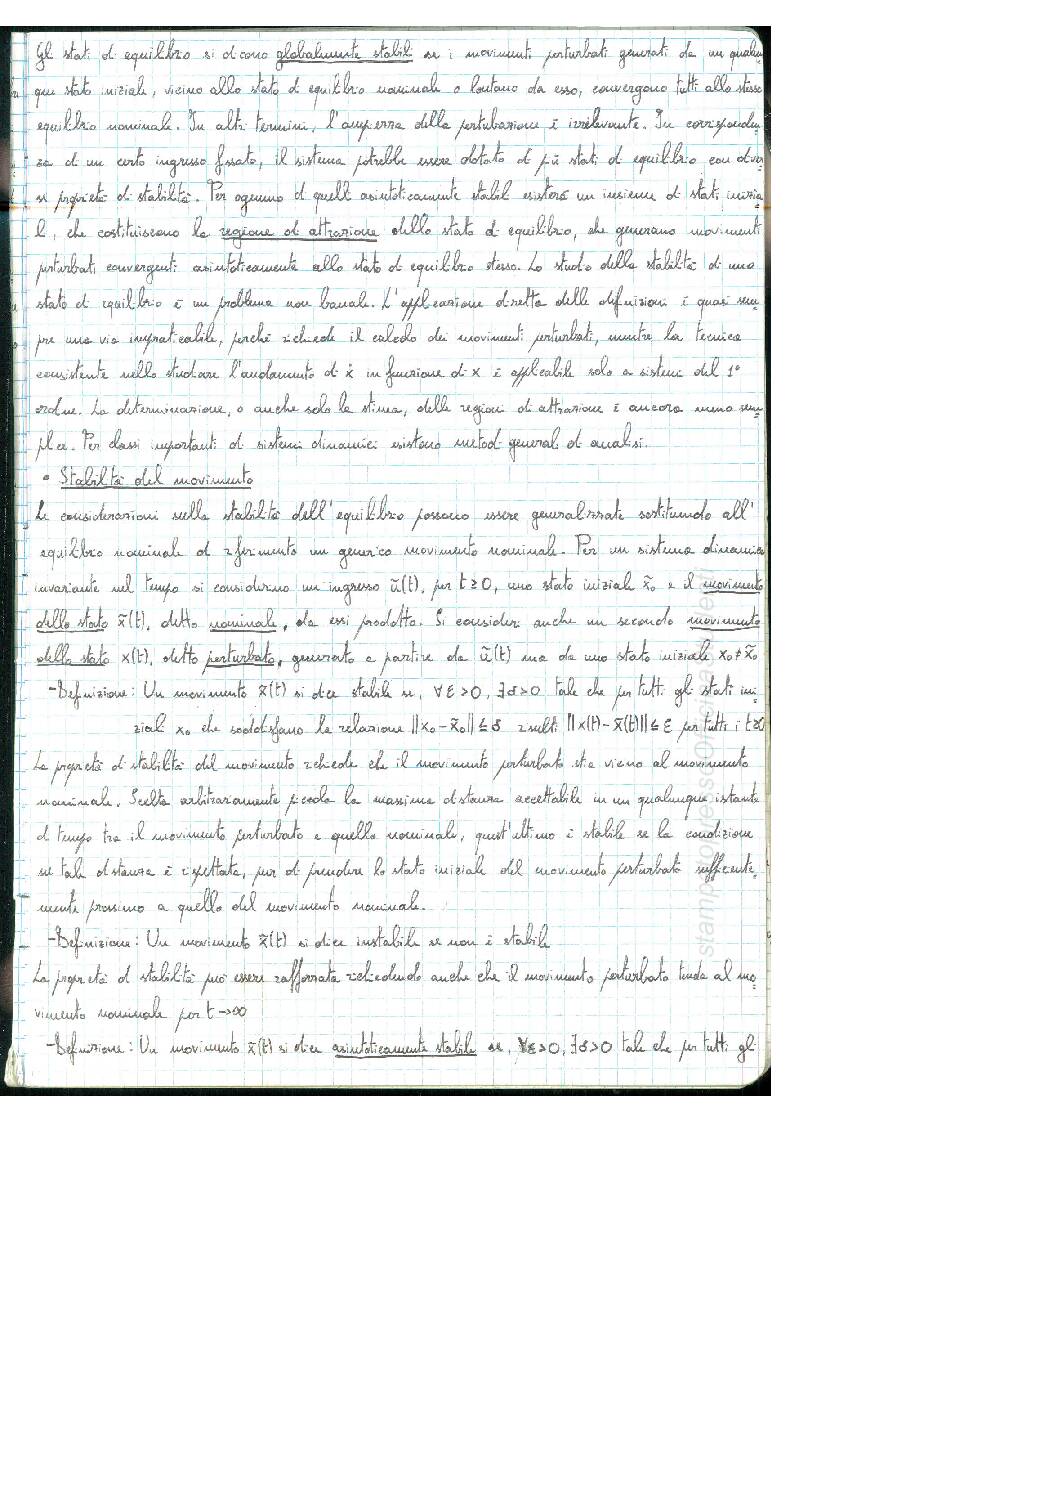 Gli stati di equilibrio si dicono globalmente stabili se i movimenti perturbati generati da un qualun
que stato iniziale, vicino allo stato di equilibrio nominale o lontano da esso, convergono tutti allo stesso
equilibrio nominale. In altri termini, l'ampiezza della perturbazione è irrilevante. In corrisponden
za di un certo ingresso fissato, il sistema potrebbe essere dotato di più stati di equilibrio con diver
se proprietà di stabilità. Per ognuno di quelli asintoticamente stabili esisterà un insieme di stati inizia
li, che costituiscono la regione di attrazione dello stato di equilibrio, che generano movimenti
perturbati convergenti asintoticamente allo stato di equilibrio stesso. Lo studio della stabilità di uno
stato di equilibrio è un problema non banale. L'applicazione diretta delle definizioni è quasi sem
pre una via impraticabile, perché richiede il calcolo dei movimenti perturbati, mentre la tecnica
consistente nello studiare l'andamento di ẋ in funzione di x è applicabile solo a sistemi del 1°
ordine. La determinazione, o anche solo la stima, delle regioni di attrazione è ancora meno sem
plice. Per classi importanti di sistemi dinamici esistono metodi generali di analisi.
• Stabilità del movimento
Le considerazioni sulla stabilità dell'equilibrio possono essere generalizzate sostituendo all'
equilibrio nominale di riferimento un generico movimento nominale. Per un sistema dinamico
invariante nel tempo si considerino un ingresso ũ(t), per t≥0, uno stato iniziale x̃₀ e il movimento
dello stato x̃(t), detto nominale, da essi prodotto. Si consideri anche un secondo movimento
dello stato x(t), detto perturbato, generato a partire da ũ(t) ma da uno stato iniziale x₀≠x̃₀
-Definizione: Un movimento x̃(t) si dice stabile se, ∀ε>0, ∃δ>0 tale che per tutti gli stati ini
ziali x₀ che soddisfano la relazione ||x₀-x̃₀||≤δ risulti ||x(t)-x̃(t)||≤ε per tutti i t≥0
La proprietà di stabilità del movimento richiede che il movimento perturbato stia vicino al movimento
nominale. Scelta arbitrariamente piccola la massima distanza accettabile in un qualunque istante
di tempo tra il movimento perturbato e quello nominale, quest'ultimo è stabile se la condizione
su tale distanza è rispettata, pur di prendere lo stato iniziale del movimento perturbato sufficiente
mente prossimo a quello del movimento nominale.
-Definizione: Un movimento x̃(t) si dice instabile se non è stabile
La proprietà di stabilità può essere rafforzata richiedendo anche che il movimento perturbato tenda al mo
vimento nominale per t→∞
-Definizione: Un movimento x̃(t) si dice asintoticamente stabile se, ∀ε>0, ∃δ>0 tale che per tutti gli